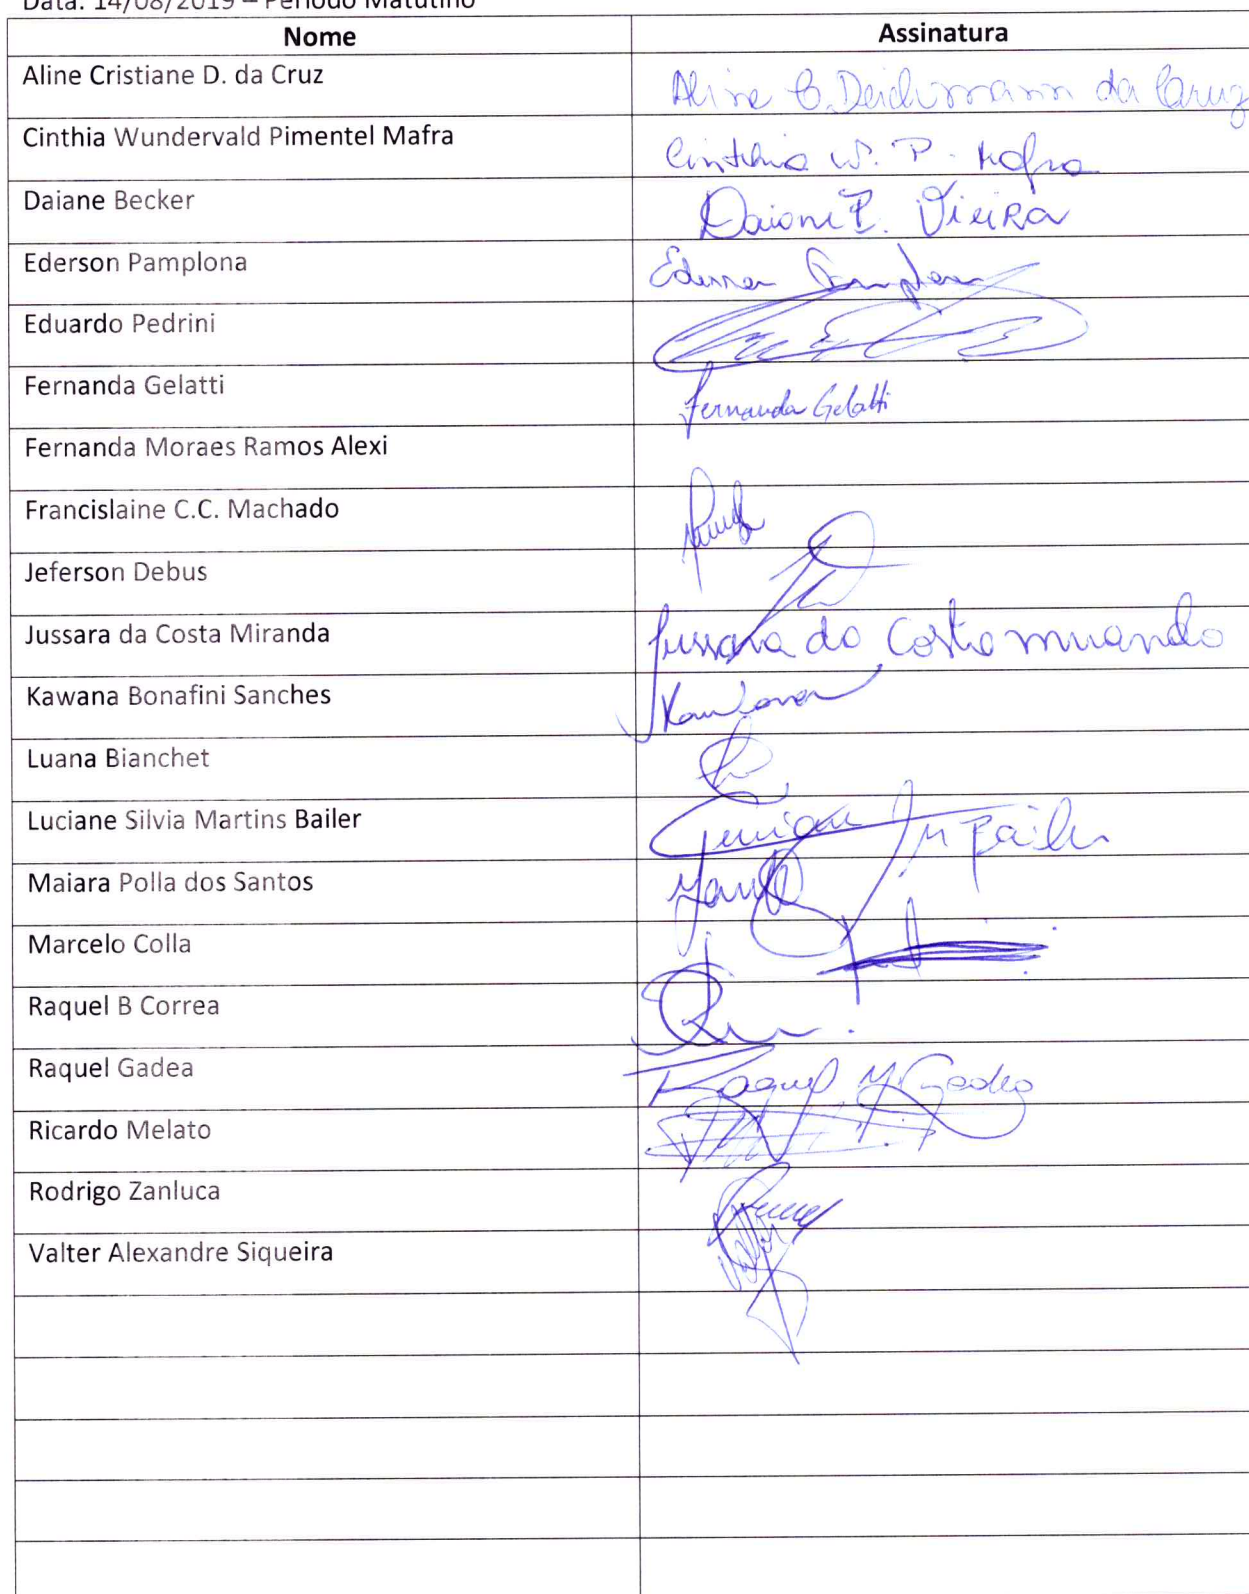 Data: 14/08/2019 – Período Matutino
Nome Assinatura
Aline Cristiane D. da Cruz Aline C. Deichmann da Cruz
Cinthia Wundervald Pimentel Mafra Cinthia W. P. Mafra
Daiane Becker Daiane P. Vieira
Ederson Pamplona Ederson Pamplona
Eduardo Pedrini
Fernanda Gelatti Fernanda Gelatti
Fernanda Moraes Ramos Alexi
Francislaine C.C. Machado
Jeferson Debus
Jussara da Costa Miranda Jussara da Costa Miranda
Kawana Bonafini Sanches
Luana Bianchet
Luciane Silvia Martins Bailer Luciane M Bailer
Maiara Polla dos Santos
Marcelo Colla
Raquel B Correa
Raquel Gadea Raquel M Gadea
Ricardo Melato
Rodrigo Zanluca
Valter Alexandre Siqueira